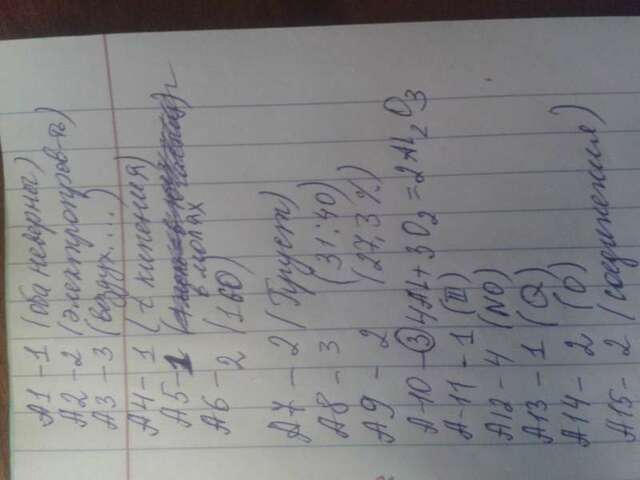 А1 - 1 (оба неверны)
А2 - 2 (электропров-ть)
А3 - 3 (воздух....)
А4 - 1 (t кипения)
А5 - 1 в молях
А6 - 2 (160)
А7 - 2 (Пруст)
А8 - 3 (31:40)
А9 - 2 (27,3%)
А-10 - 3 4Al + 3O2 = 2Al2O3
А-11 - 1 (III)
А12 - 4 (NO)
А13 - 1 (Q)
А14 - 2 (O)
А15 - 2 (соединения)